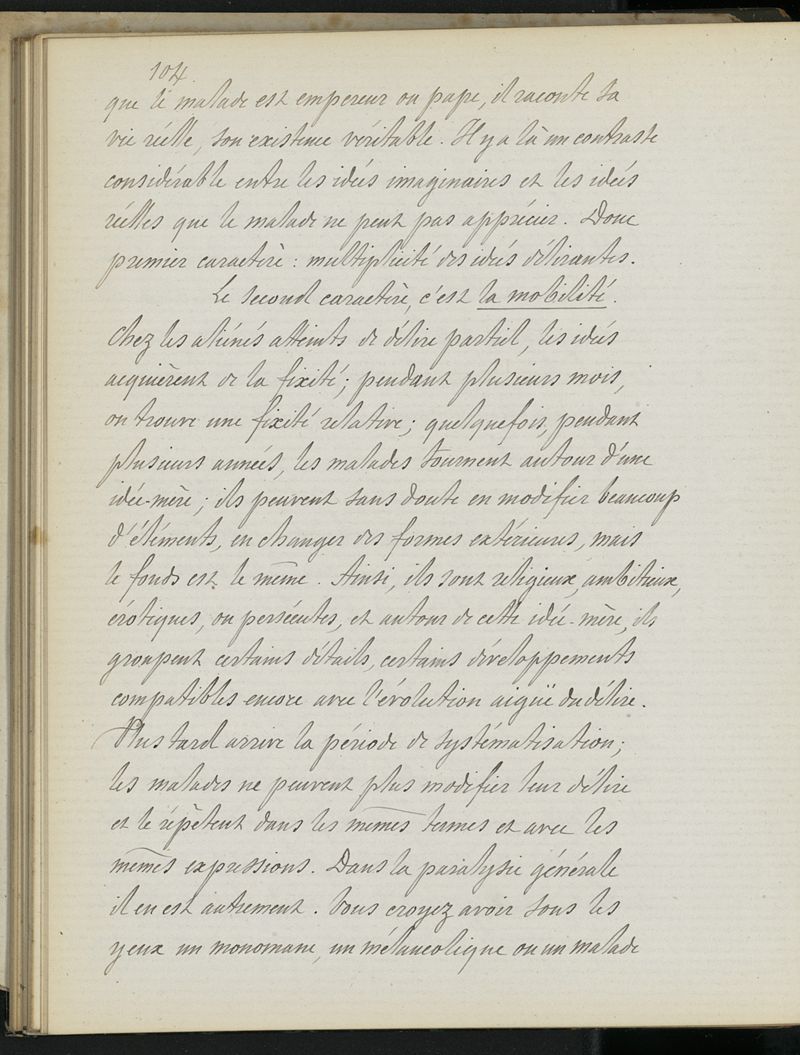 104
que le malade est empereur ou pape, il raconte sa
vie réelle, son existence véritable. Il y a là un contraste
considérable entre les idées imaginaires et les idées
réelles que le malade ne peut pas apprécier. Donc
premier caractère : multiplicité des idées délirantes.
Le second caractère, c'est la mobilité.
Chez les aliénés atteints de délire partiel, les idées
acquièrent de la fixité ; pendant plusieurs mois,
on trouve une fixité relative ; quelquefois, pendant
plusieurs années, les malades tournent autour d'une
idée-mère ; ils peuvent sans doute en modifier beaucoup
d'éléments, en changer des formes extérieures, mais
le fonds est le même. Ainsi, ils sont religieux, ambitieux,
érotiques, ou persécutés, et autour de cette idée-mère, ils
groupent certains détails, certains développements
compatibles encore avec l'évolution aiguë du délire.
Plus tard arrive la période de systématisation ;
les malades ne peuvent plus modifier leur délire
et le répètent dans les mêmes termes et avec les
mêmes expressions. Dans la paralysie générale
il en est autrement. Vous croyez avoir sous les
yeux un monomane, un mélancolique ou un malade